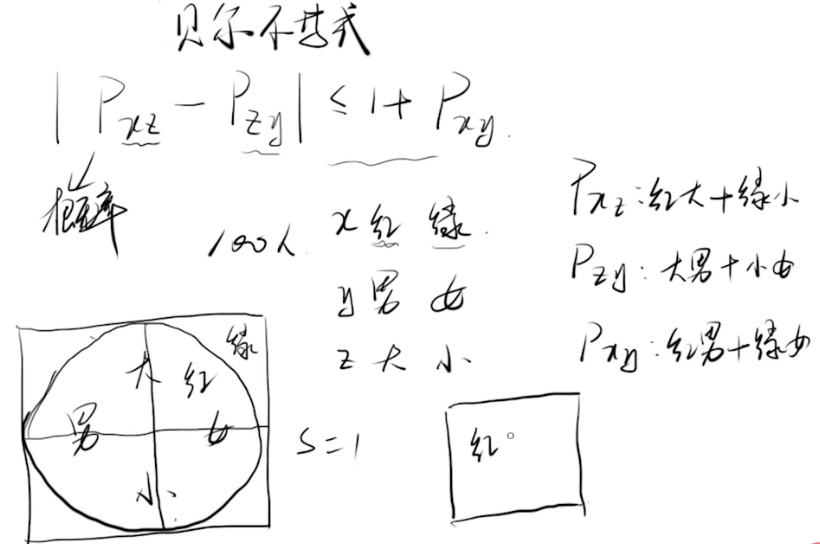 贝尔不等式
|Pxz - Pzy| ≤ 1 + Pxy.
概率
100人 x 红 绿.
y 男 女
z 大 小
Pxz:红大+绿小
Pzy:大男+小女
Pxy:红男+绿女
绿
大 红
男 女
小
S=1
红